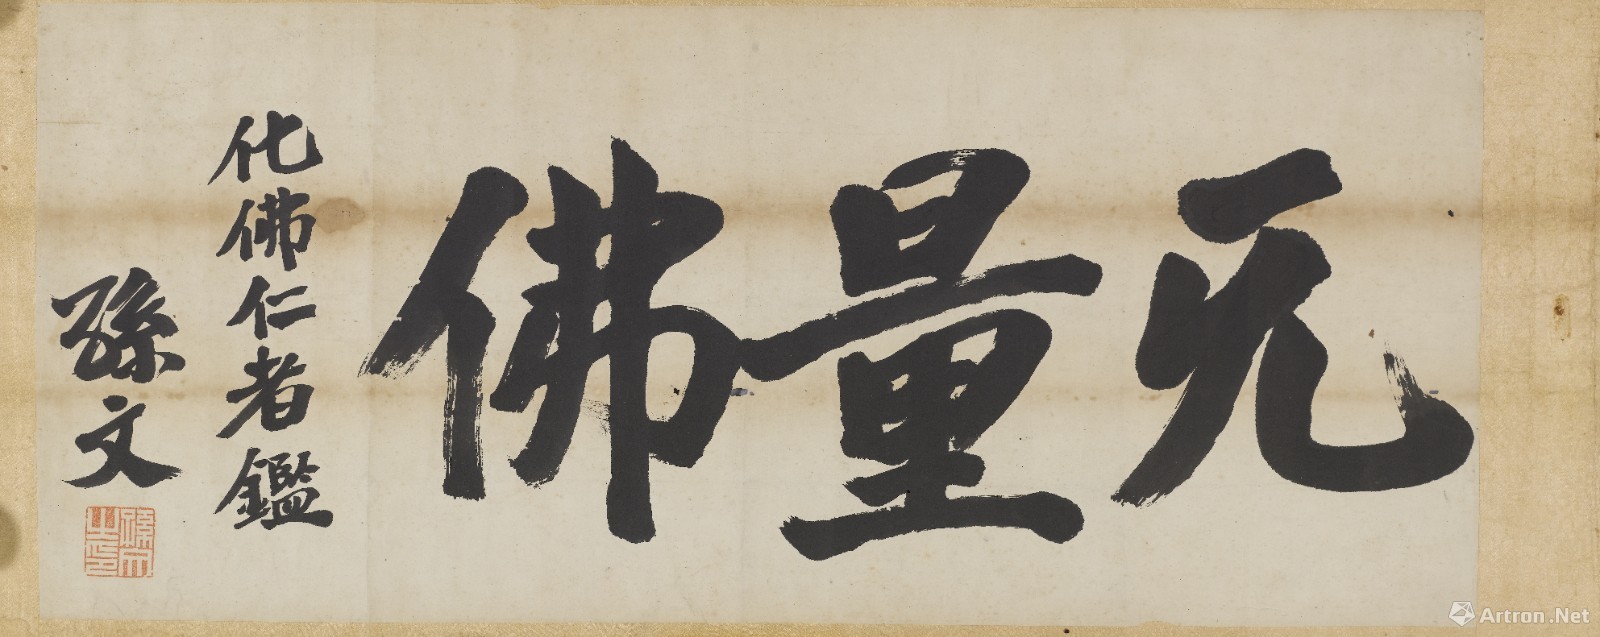 无量佛
化佛仁者鑑
孫文
孫文之印
Artron.Net